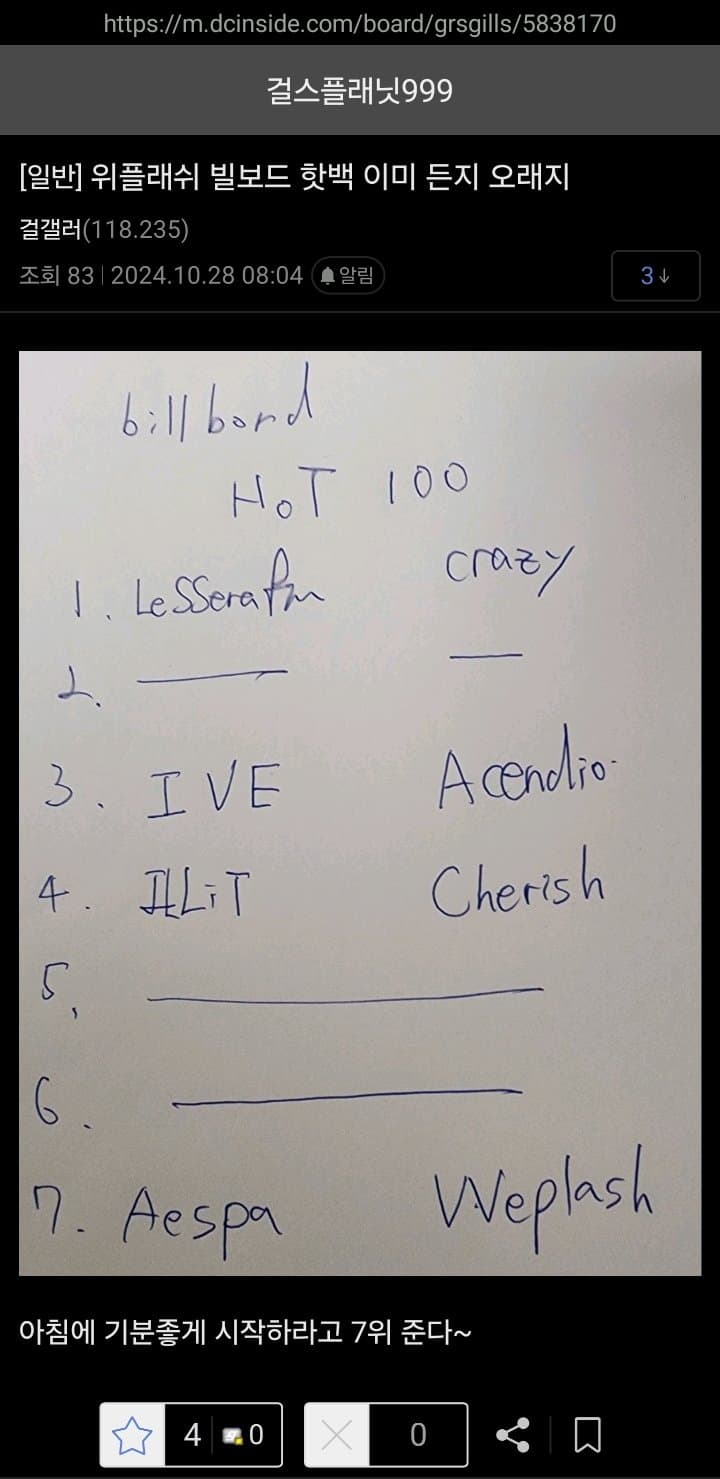 https://m.dcinside.com/board/grsgills/5838170
걸스플래닛999
[일반] 위플래쉬 빌보드 핫백 이미 든지 오래지
걸갤러(118.235)
조회 83 | 2024.10.28 08:04 알림
3↓
billbord
HoT 100
1. LeSSerafim crazy
2. — —
3. IVE Acendio.
4. ILLiT Cherish
5. —
6. —
7. Aespa Weplash
아침에 기분좋게 시작하라고 7위 준다~
4 0 0